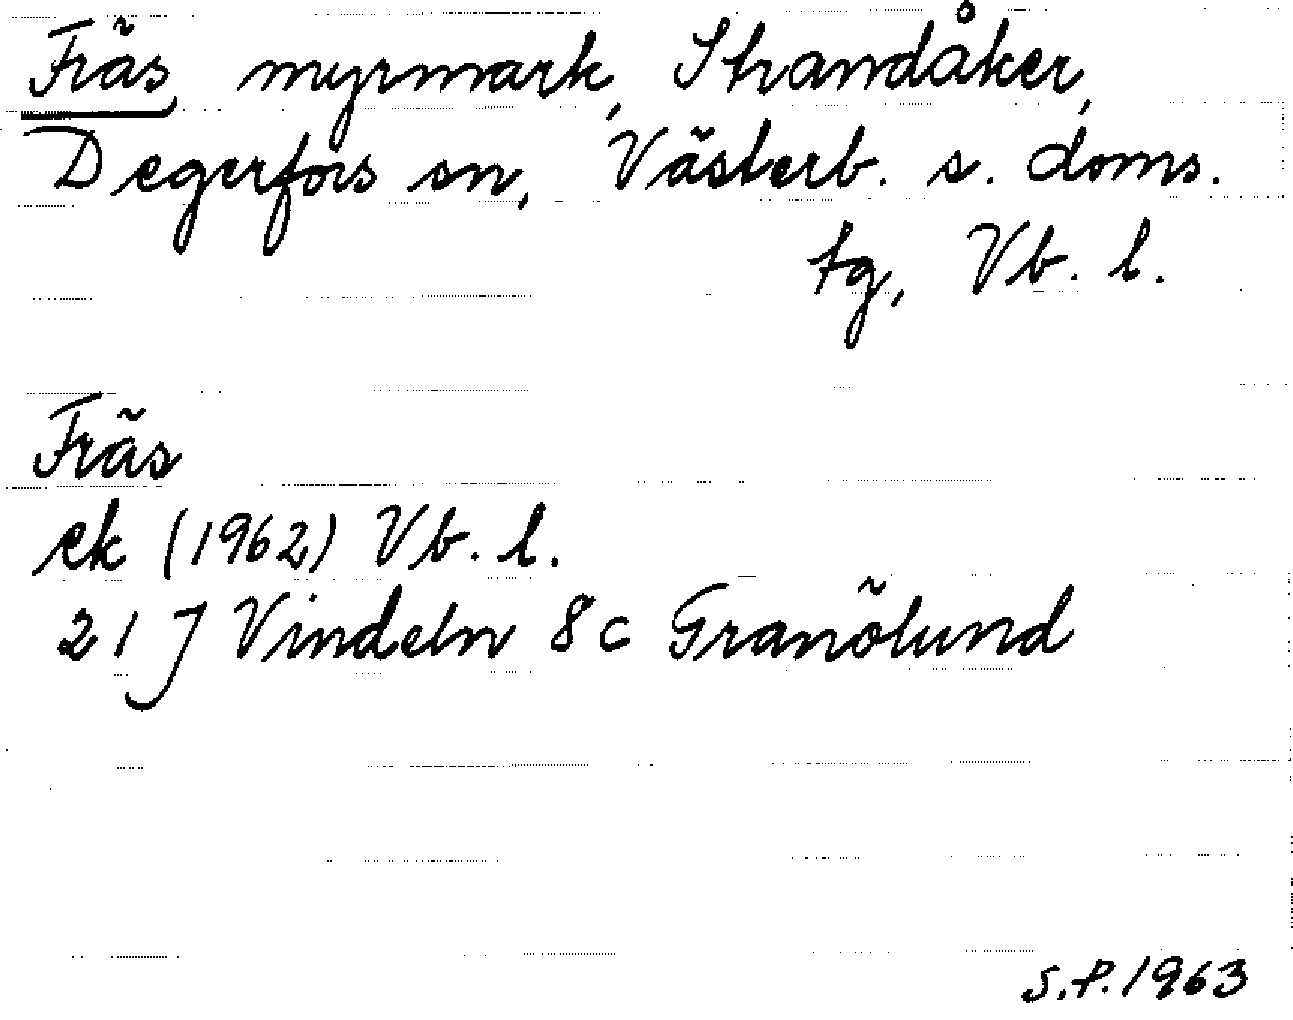 Fräs, myrmark, Strandåker,
Degerfors sn, Västerb. s. doms.
tg, Vb. l.
Fräs
ek (1962) Vb. l.
21 J Vindeln 8c Granölund
S.P. 1963